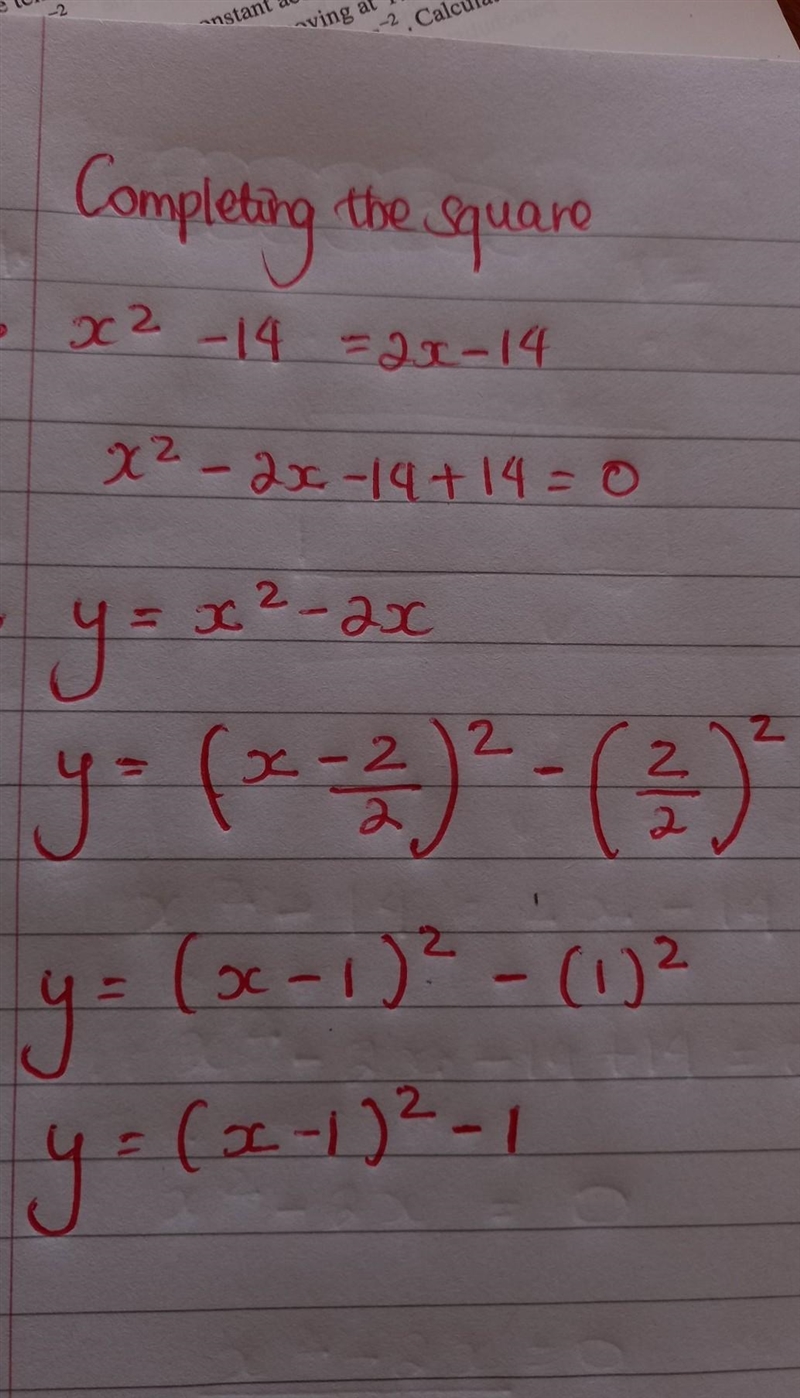 -2
onstant ac
oving at
-2 . Calcula
Completing the square
x² -14 = 2x-14
x² - 2x -14 + 14 = 0
y = x² - 2x
y = (x - 2/2)² - (2/2)²
y = (x - 1)² - (1)²
y = (x - 1)² - 1